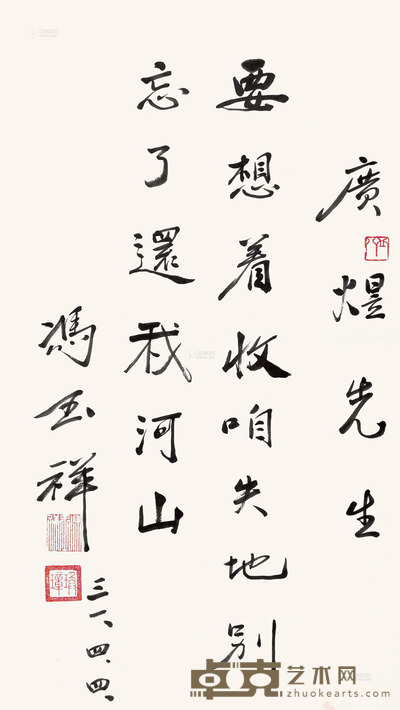 廣煜先生
要想着收咱失地别
忘了還我河山
馮玉祥
三一、四、四、
卓克艺术网
zhuokearts.com